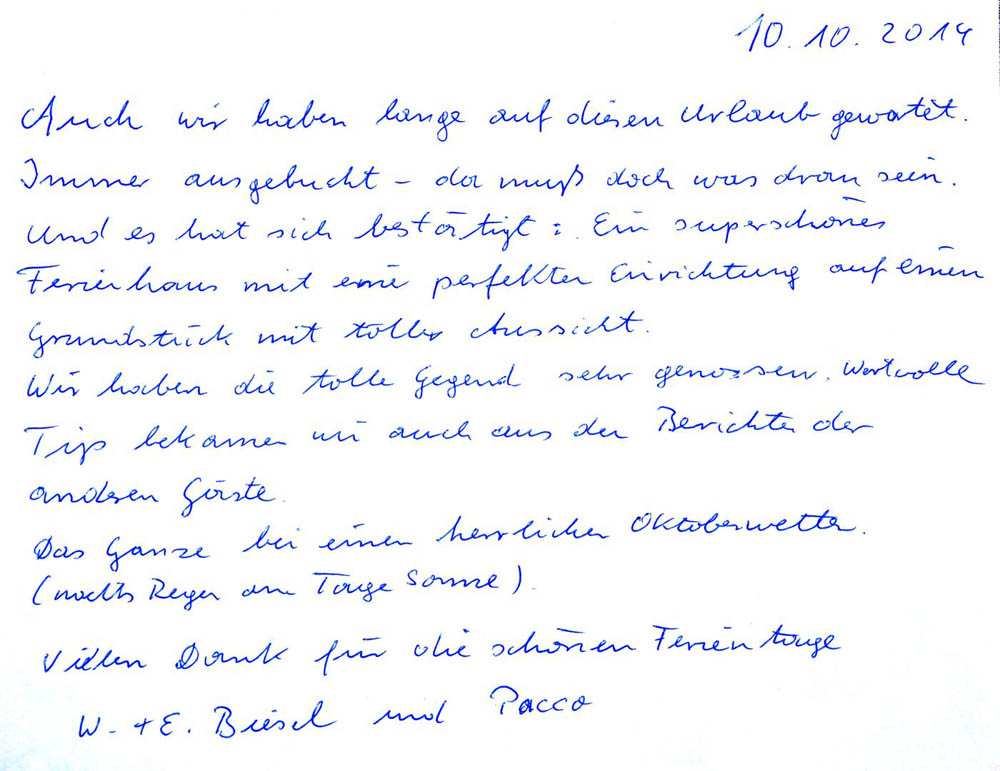 10.10.2014
Auch wir haben lange auf diesen Urlaub gewartet.
Immer ausgebucht – da muß doch was dran sein.
Und es hat sich bestätigt: Ein superschönes
Ferienhaus mit eine perfekter Einrichtung auf einen
Grundstück mit toller Aussicht.
Wir haben die tolle Gegend sehr genossen. Wertvolle
Tips bekamen wir auch aus den Berichten der
anderen Gäste.
Das Ganze bei einen herrlichen Oktoberwetter.
(nachts Regen am Tage Sonne).
Vielen Dank für die schönen Ferientage
W. + E. Biesel und Pacco